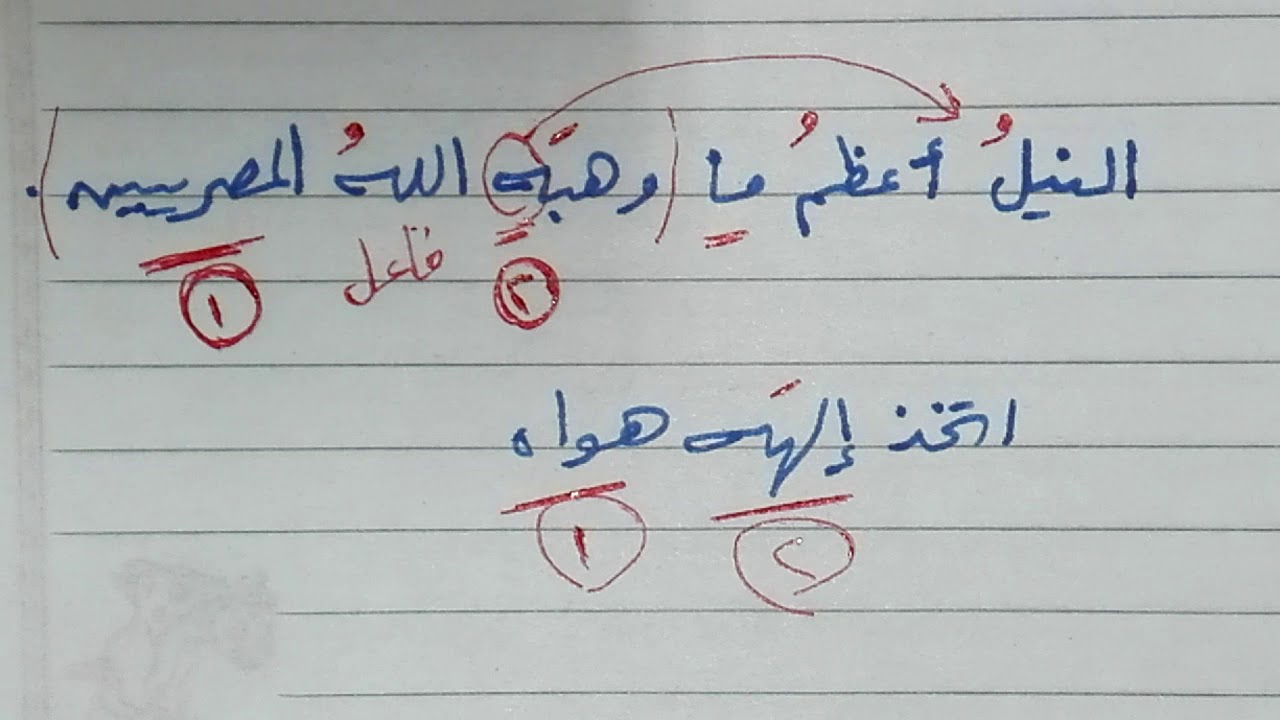 النيلُ أعظمُ ما (وهبَه اللهُ المصريين).
٢ فاعل ١
اتخذ إلهَه هواه
٢ ١